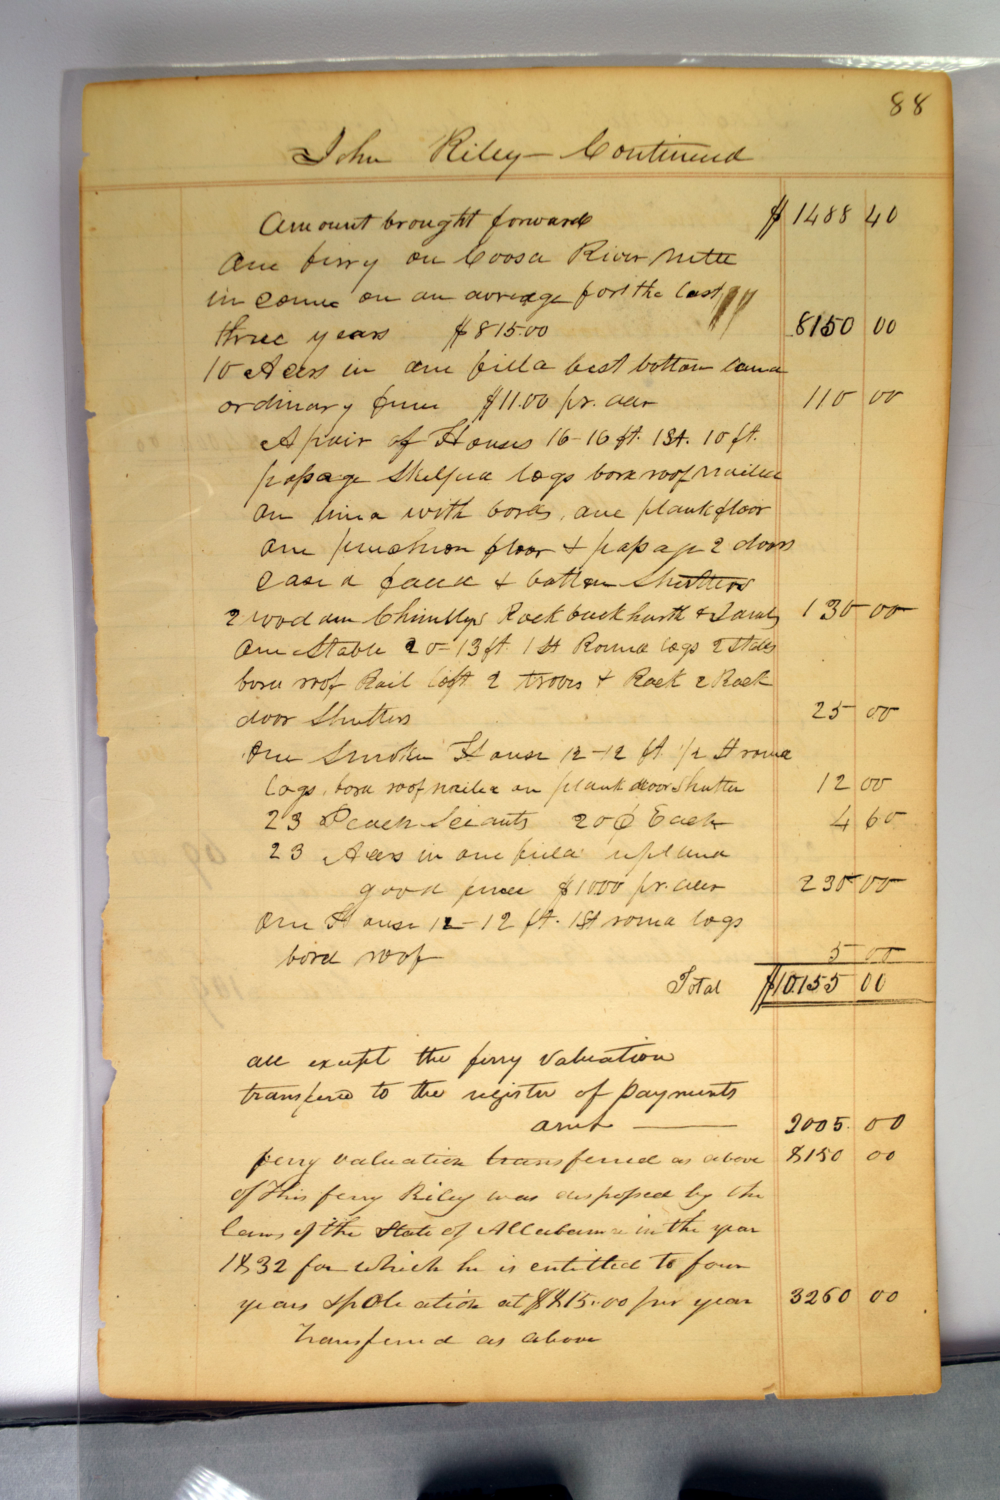 88
John Riley — Continued
Amount brought forward $ 1488 40
One ferry on Coosa River nett
in come on an average for the last
three years $815.00 8150 00
10 Acrs in one field best bottom land
ordinary fence $11.00 pr. acr 110 00
A pair of Houses 16-16 ft. 1St. 10 ft.
passage Skelped logs bord roof nailed
on lined with bords, one plank floor
one punchion floor & passage 2 doors
cased faced & batten Shutters
2 wooden Chimblys Rock back harth & Jambs 130 00
One Stable 20-13 ft. 1 St Round logs 2 stalls
bord roof Rail loft 2 troves & Rack 2 Rack
door Shutters 25 00
One Smoke House 12-12 ft 1/2 St round
logs, bord roof nailed on plank door Shutter 12 00
23 Peach Sciants 20¢ Each 4 60
23 Acrs in one field upland
good fence $1000 pr. acr 230 00
One House 12-12 ft. 1St round logs
bord roof 5 00
Total $10.155 00
all except the ferry valuation
transfered to the register of payments
amt — 2005. 00
ferry valuation transferred as above 8150 00
of this ferry Riley was dispossed by the
laws of the State of Allabama in the year
1832 for which he is entitled to four
years spoliation at $815.00 per year 3260 00
transferred as above